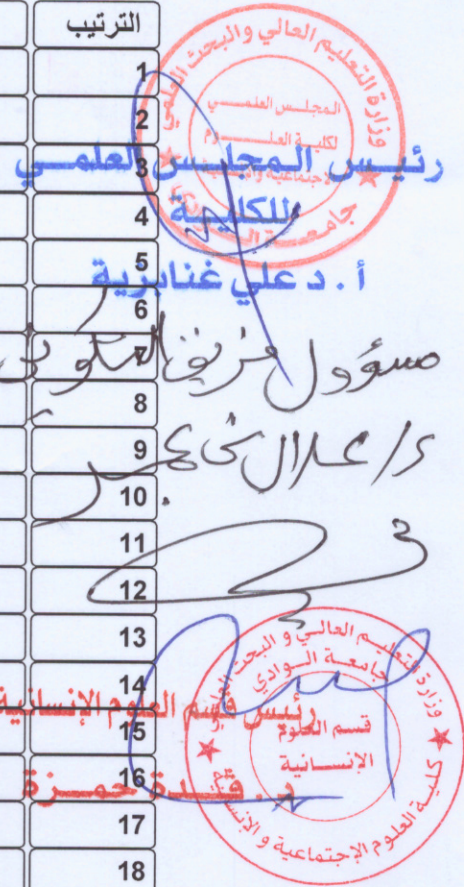 الترتيب
1
2
3
4
5
6
7
8
9
10
11
12
13
14
15
16
17
18
وزارة التعليم العالي والبحث العلمي
المجلس العلمي
لكلية العلوم
الإجتماعية
جامعة الوادي
رئيس المجلس العلمي
للكلية
أ. د علي غنابزية
مسؤول فريق التكوين
د/ علال
وزارة التعليم العالي و البحث العلمي
جامعة الوادي
قسم العلوم
الإنسانية
كلية العلوم الإجتماعية و الإنسانية
رئيس قسم العلوم الإنسانية
حمزة